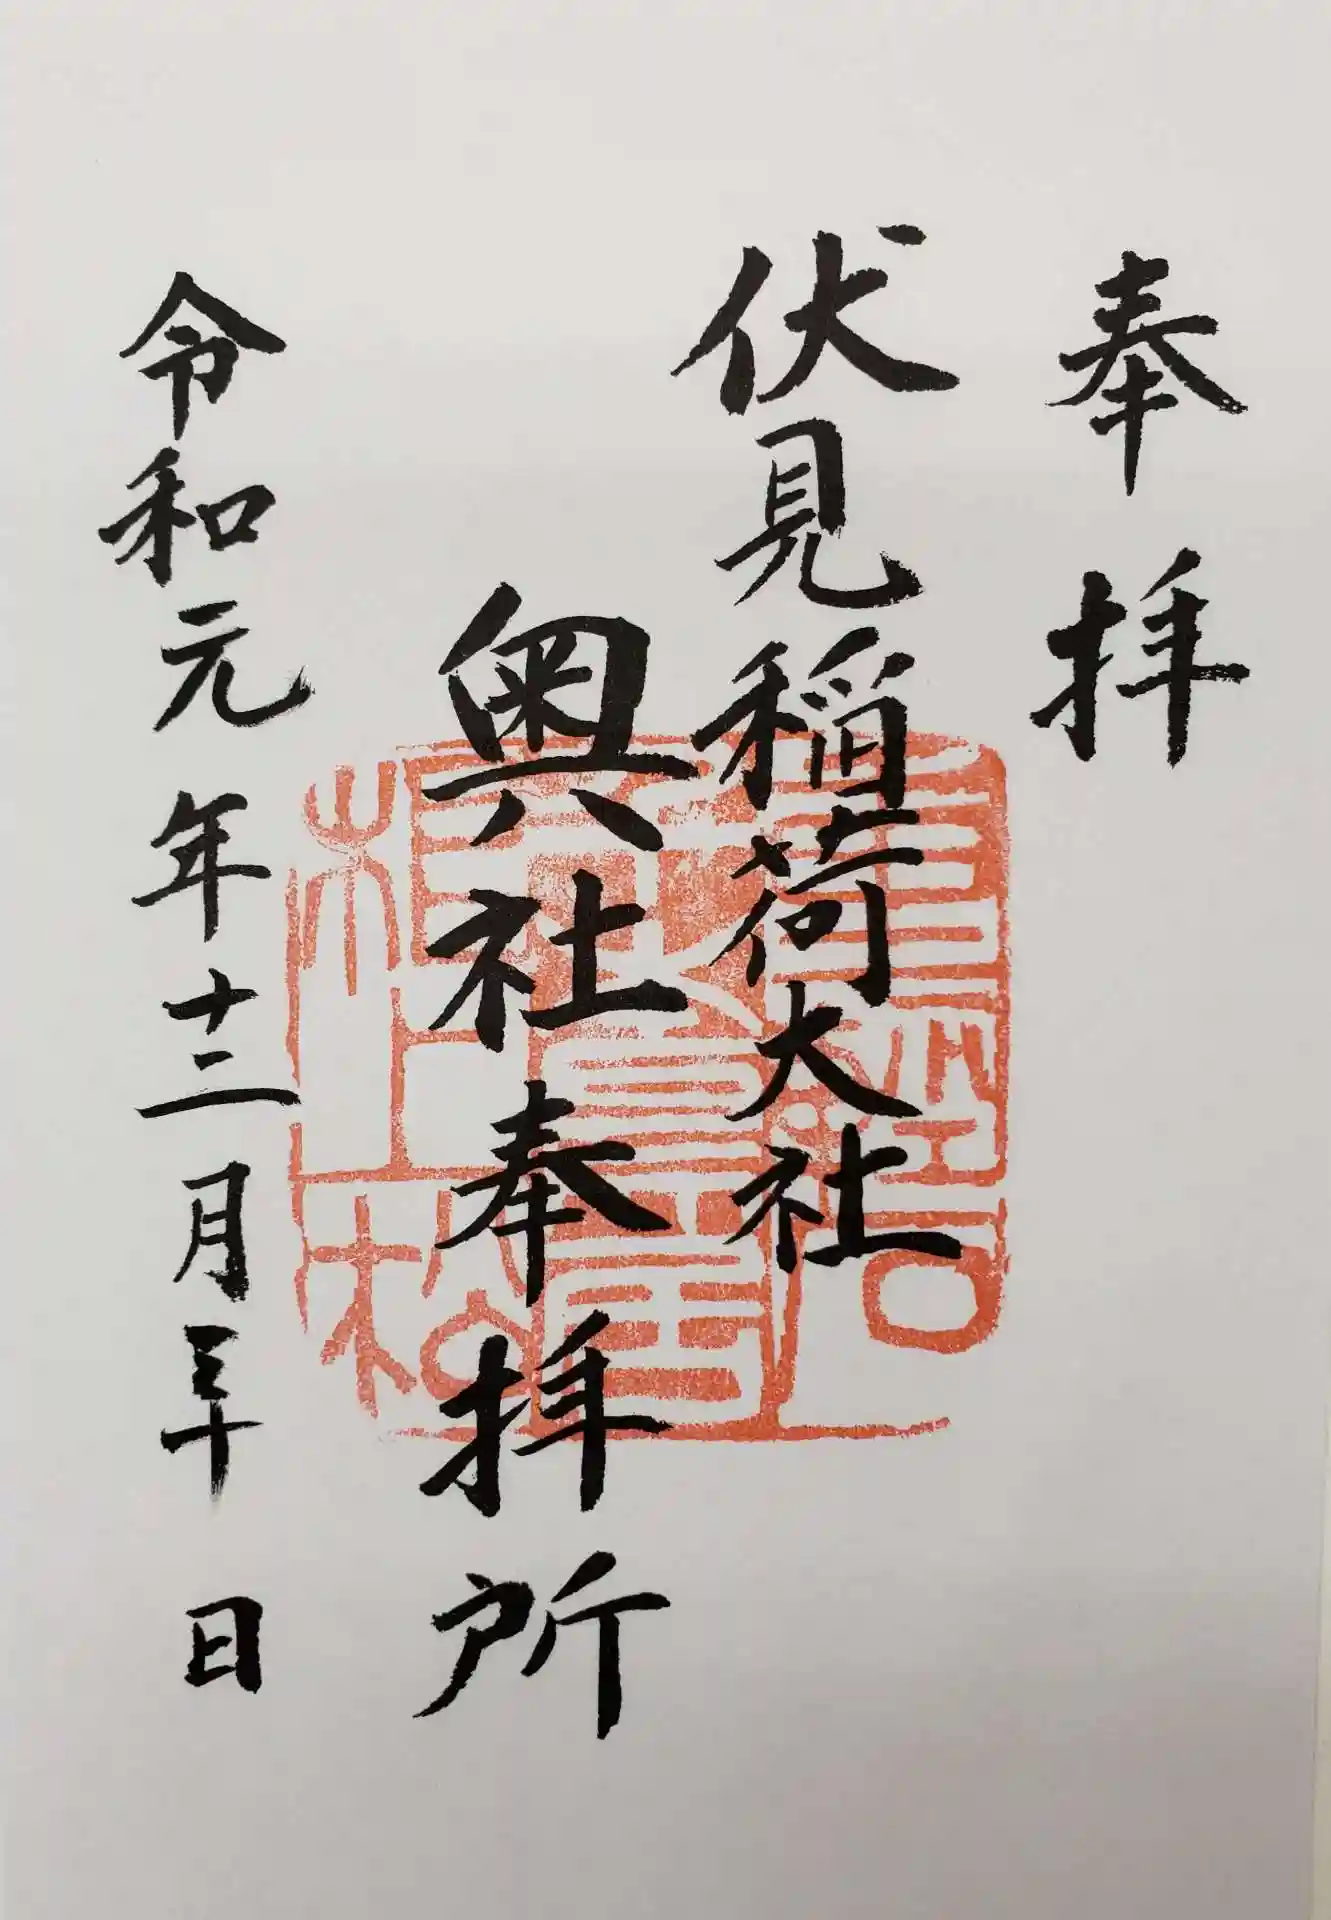 奉拝
伏見稲荷大社
奥社奉拝所
令和元年十二月三十日